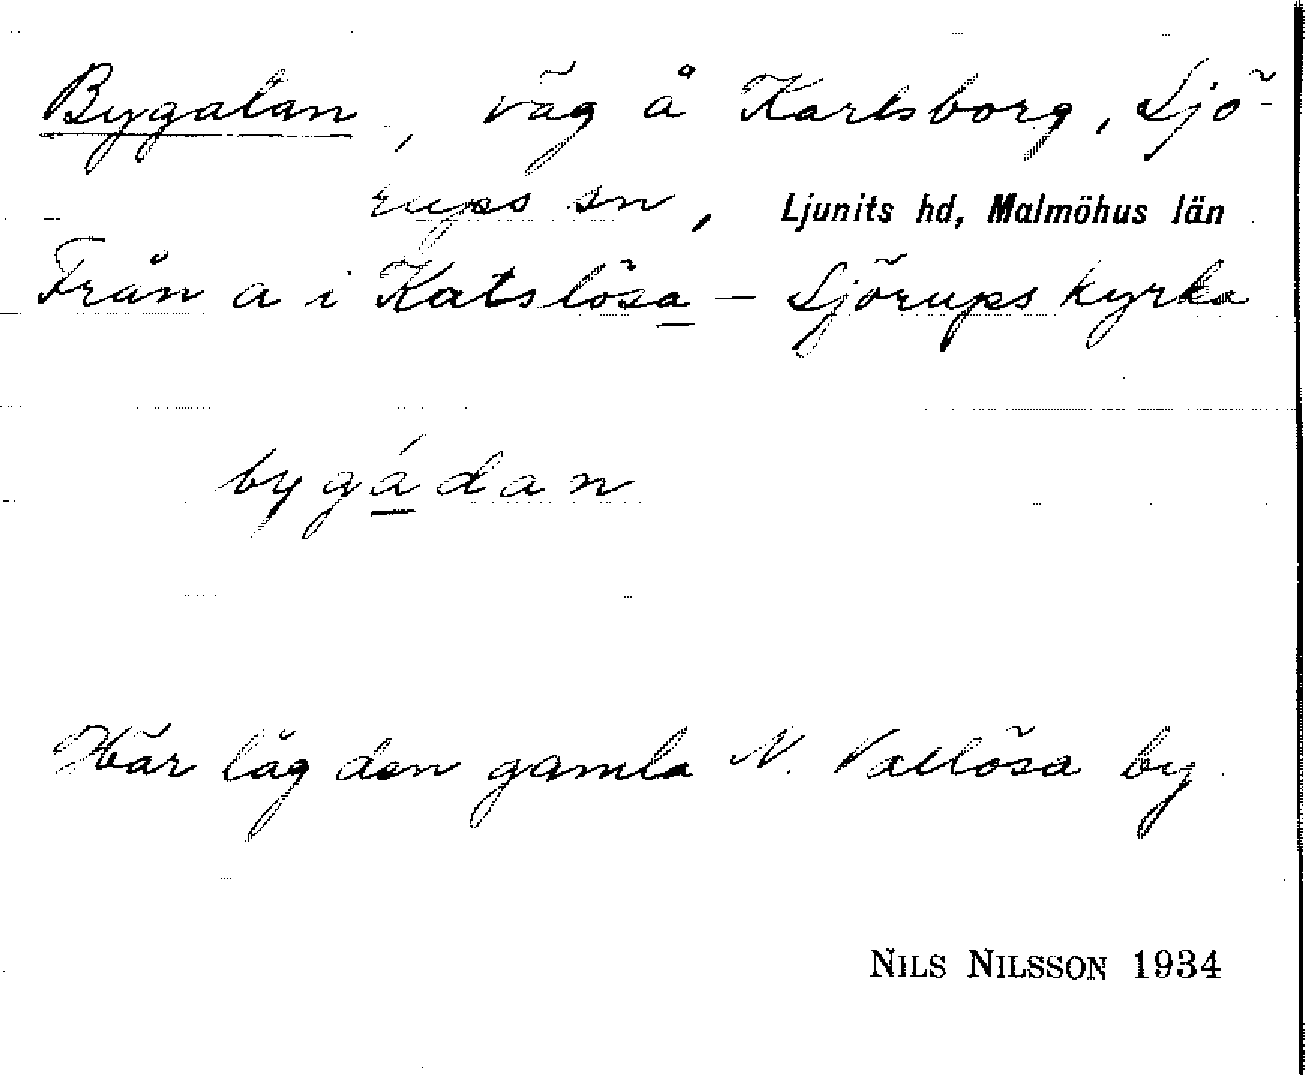 Bygatan, väg å Karlsborg, Sjö-
rups sn, Ljunits hd, Malmöhus län
Från a i Katslösa – Sjörups kyrka
bygádan
Här låg den gamla N. Vallösa by.
NILS NILSSON 1934